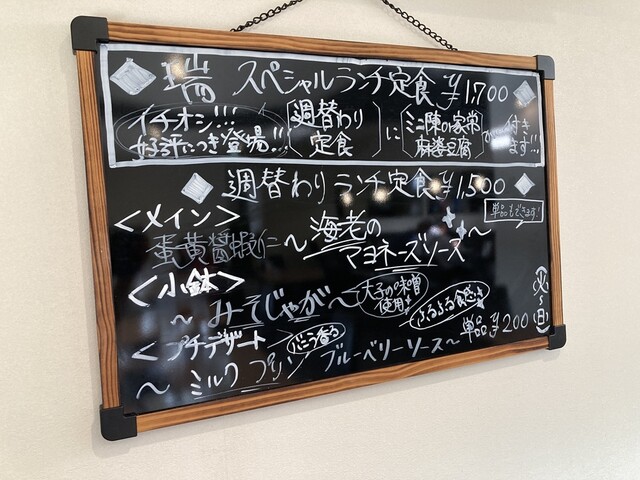 瑞 スペシャルランチ定食 ¥1,700
イチオシ!!!
好評につき登場!!
週替わり
定食
に
ミニ陳の家常
麻婆豆腐
が付き
ます!!
週替わりランチ定食 ¥1,500
単品もできます!
<メイン>
蛋黄醤蝦仁 〜海老の
マヨネーズソース〜
<小鉢>
〜みそじゃが〜
大子の味噌
使用
(火)〜(日)
<プチデザート
バニラ香る
ぷるぷる食感
単品¥200
〜ミルクプリン ブルーベリーソース〜